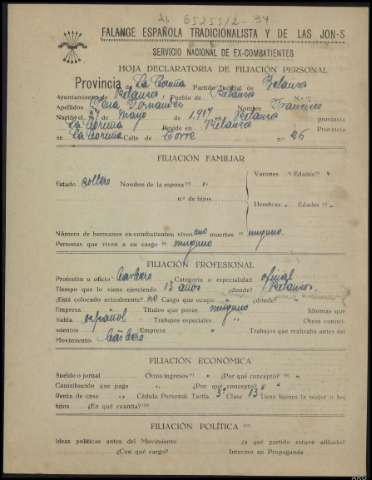 65255/2-94
FALANGE ESPAÑOLA TRADICIONALISTA Y DE LAS JON-S
SERVICIO NACIONAL DE EX-COMBATIENTES
HOJA DECLARATORIA DE FILIACIÓN PERSONAL
Provincia de La Coruña Partido Judicial de Betanzos
Ayuntamiento de Betanzos Pueblo de Betanzos
Apellidos Fernandez Nombre Francisco
Natural, de Mayo de 1.917 Betanzos provincia
La Coruña Reside en Betanzos Provincia
La Coruña Calle de Torre nº 26
FILIACIÓN FAMILIAR
Estado soltero Nombre de la esposa Varones Edades
n.º de hijos
Hembras Edades
Número de hermanos ex-combatientes vivos uno muertos ninguno
Personas que viven a su cargo ninguno
FILIACIÓN PROFESIONAL
Profesión u oficio barbero Categoría o especialidad oficial
Tiempo que lo viene ejerciendo 13 años ¿dónde? Betanzos
¿Está colocado actualmente? no Cargo que ocupa ¿dónde?
Empresa Títulos que posee ninguno Idiomas que
habla español Trabajos especiales Otros conoci-
mientos Empresa Trabajos que realizaba antes del
Movimiento barbero
FILIACIÓN ECONÓMICA
Sueldo o jornal Otros ingresos ¿Por qué concepto?
Contribución que paga ¿Por qué concepto?
Renta de casa Cédula Personal Tarifa 3ª Clase 13ª Tiene bienes la mujer o los
hijos ¿En qué cuantía?
FILIACIÓN POLÍTICA
Ideas políticas antes del Movimiento ¿a qué partido estuvo afiliado?
¿Con qué cargo? Intervino en Propaganda